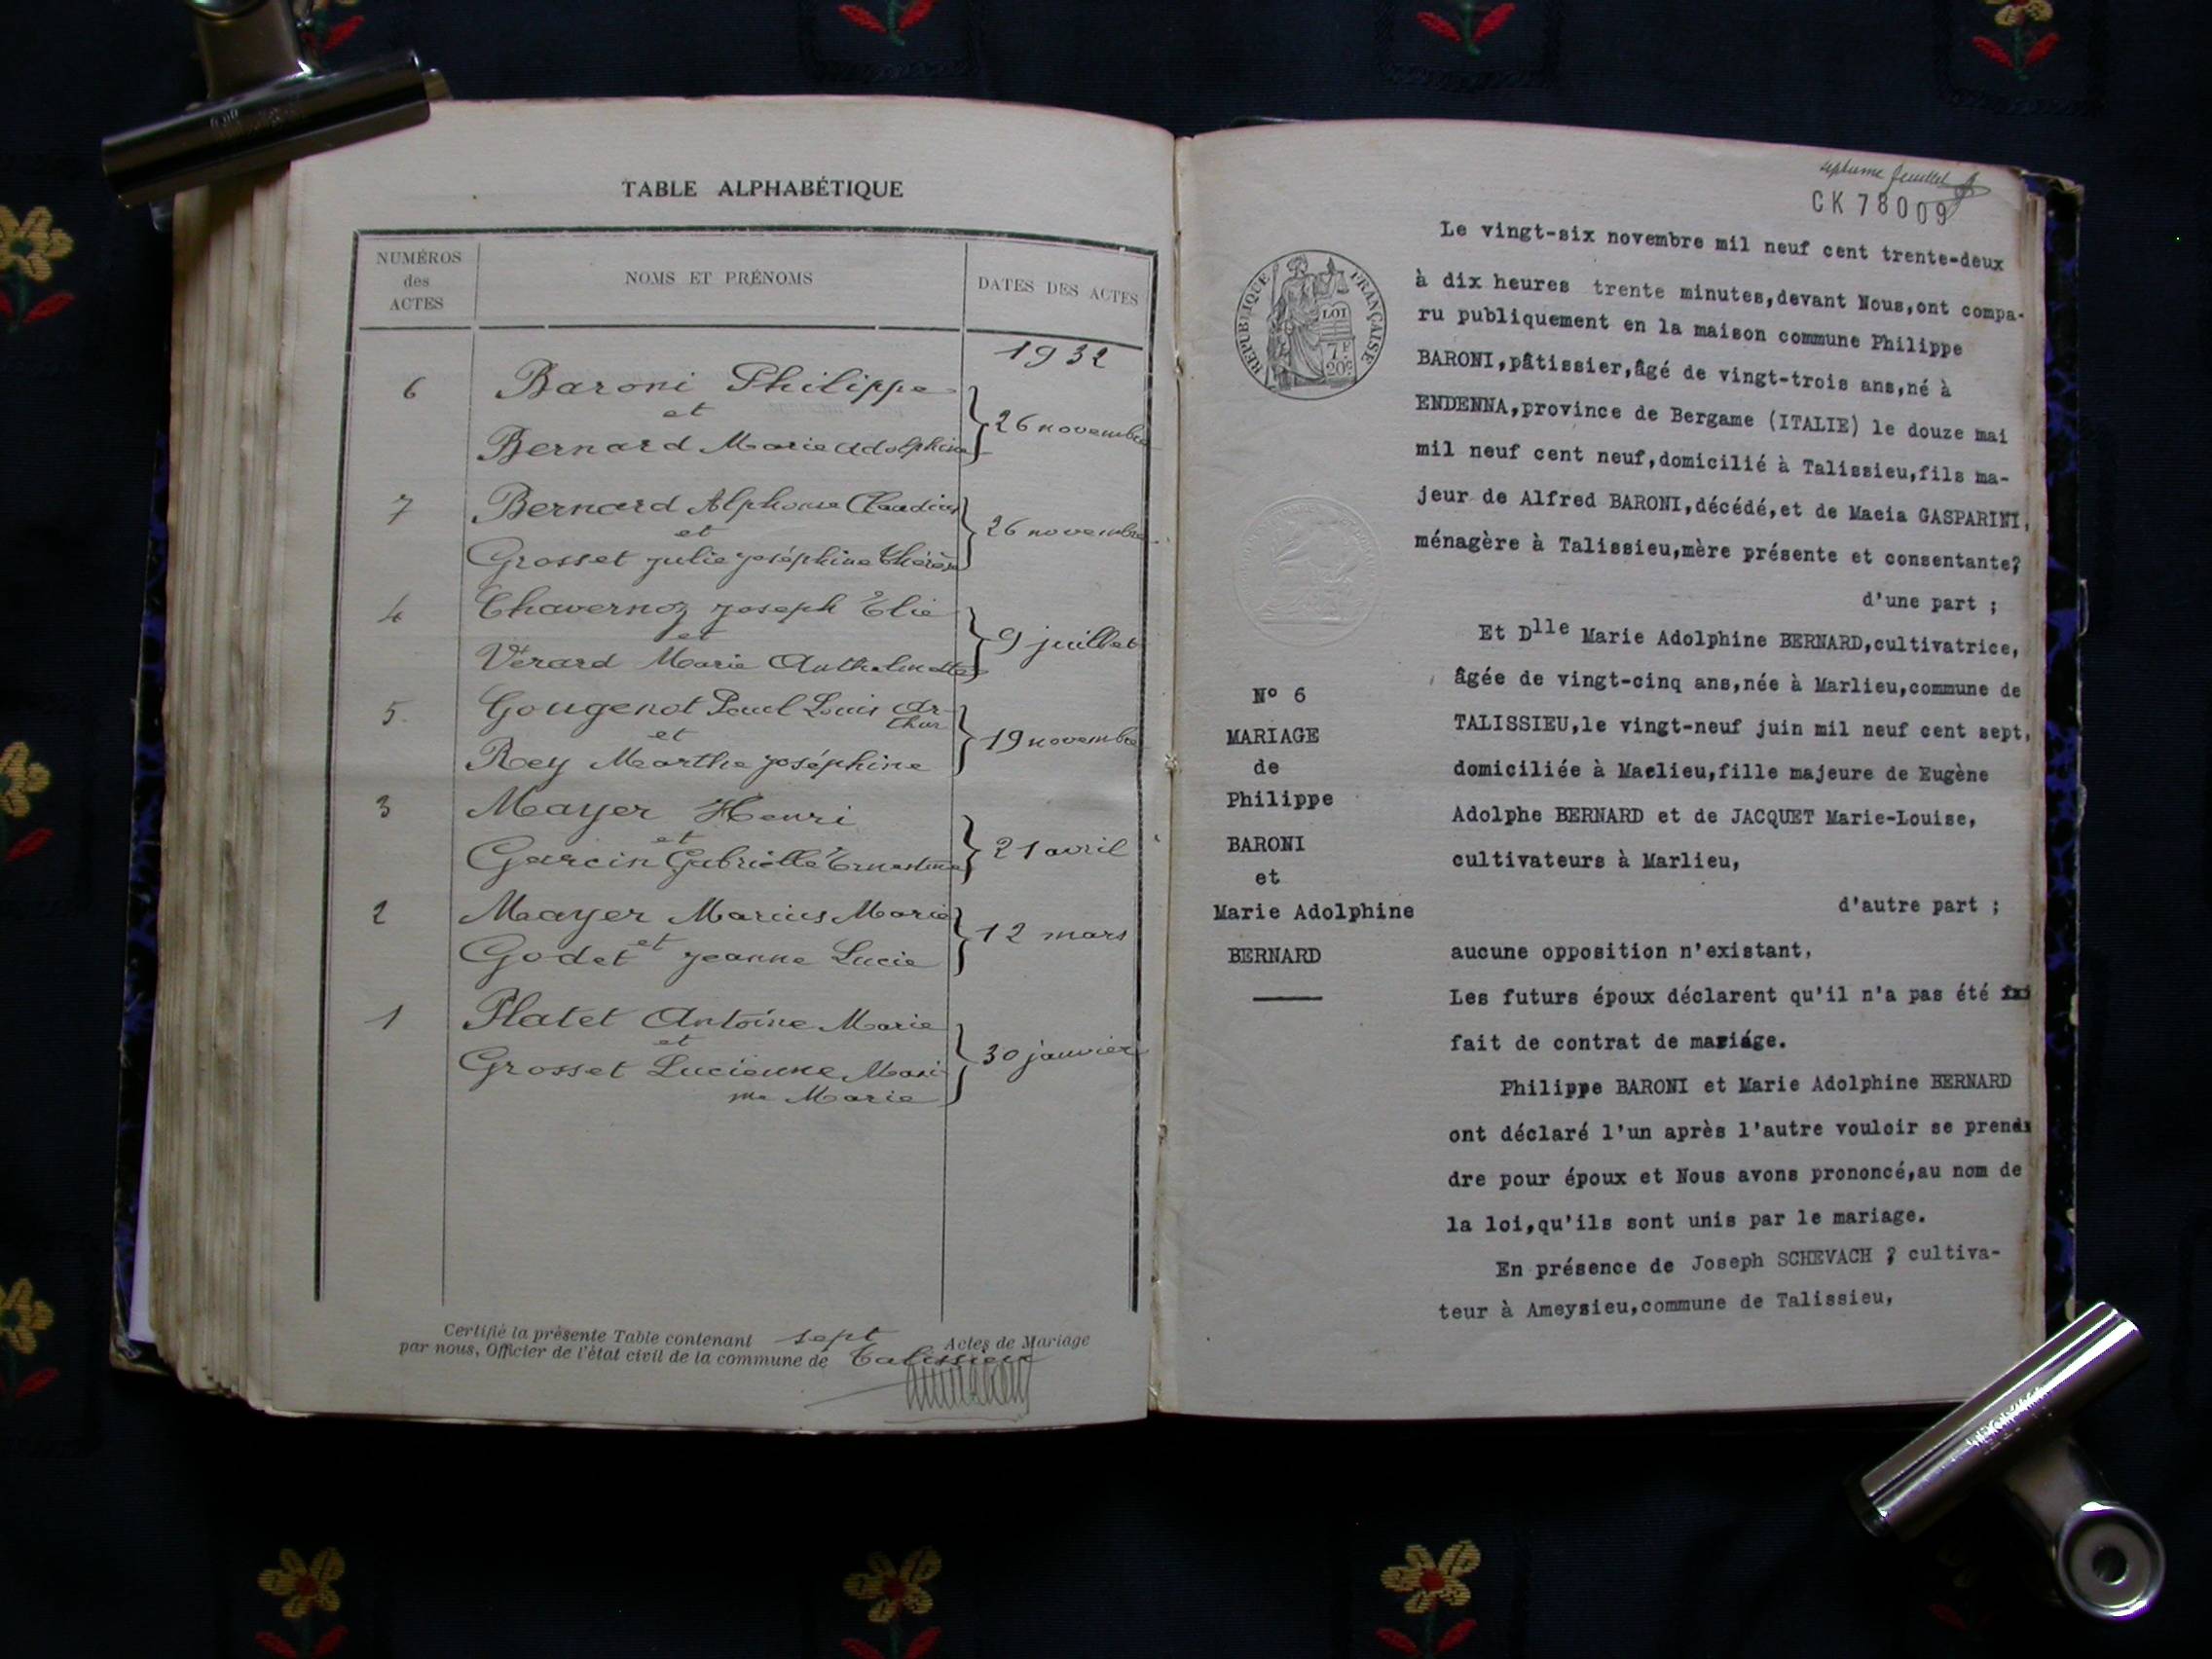 TABLE ALPHABÉTIQUE
NUMÉROS
des
ACTES
NOMS ET PRÉNOMS
DATES DES ACTES
1932
6
Baroni Philippe
et
Bernard Marie Adolphine
26 novembre
7
Bernard Alphonse Claudius
et
Grosset Julie Joséphine Thérèse
26 novembre
4
Chavernoz Joseph Elie
et
Vérard Marie Anthelmette
9 juillet
5
Gougenot Paul Louis Ar-
thur
et
Rey Marthe Joséphine
19 novembre
3
Mayer Henri
et
Garcin Gabrielle Ernestine
21 avril
2
Mayer Marius Marie
et
Godet Jeanne Lucie
12 mars
1
Platet Antoine Marie
et
Grosset Lucienne Maxi-
me Marie
30 janvier
Certifié la présente Table contenant sept Actes de Mariage
par nous, Officier de l'état civil de la commune de Talissieu
septième feuillet
CK 78009
RÉPUBLIQUE FRANÇAISE
LOI
7F
20c
Le vingt-six novembre mil neuf cent trente-deux
à dix heures trente minutes,devant Nous,ont compa-
ru publiquement en la maison commune Philippe
BARONI,pâtissier,âgé de vingt-trois ans,né à
ENDENNA,province de Bergame (ITALIE) le douze mai
mil neuf cent neuf,domicilié à Talissieu,fils ma-
jeur de Alfred BARONI,décédé,et de Maeia GASPARINI,
ménagère à Talissieu,mère présente et consentante?
d'une part ;
Et Dlle Marie Adolphine BERNARD,cultivatrice,
âgée de vingt-cinq ans,née à Marlieu,commune de
TALISSIEU,le vingt-neuf juin mil neuf cent sept,
domiciliée à Maelieu,fille majeure de Eugène
Adolphe BERNARD et de JACQUET Marie-Louise,
cultivateurs à Marlieu,
d'autre part ;
N° 6
MARIAGE
de
Philippe
BARONI
et
Marie Adolphine
BERNARD
aucune opposition n'existant,
Les futurs époux déclarent qu'il n'a pas été
fait de contrat de mariáge.
Philippe BARONI et Marie Adolphine BERNARD
ont déclaré l'un après l'autre vouloir se pren
dre pour époux et Nous avons prononcé,au nom de
la loi,qu'ils sont unis par le mariage.
En présence de Joseph SCHEVACH ? cultiva-
teur à Ameysieu,commune de Talissieu,